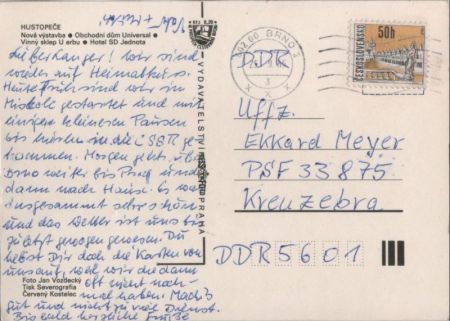 HUSTOPEČE
Nová výstavba ● Obchodní dům Universal ●
Vinný sklep U erbu ● Hotel SD Jednota
wir sind
wieder auf
Heute früh sind wir in
gestartet und mit
einigen kleinen Pausen
bis hierher in die ČSSR ge-
kommen. Morgen geht's über
Brno weiter bis Prag und
dann nach Hause. Es war
insgesamt sehr schön
und das Wetter ist uns bis
jetzt gewogen gewesen. Du
hebst Dir doch die Karten von
uns auf, weil wir die dann
oft nicht noch-
mal haben. Mach's
gut und nicht zu viel Dienst.
Bis bald herzliche Grüße
Foto Jan Vozdecký
Tisk Severografia
Červený Kostelec
VYDAVATELSTVÍ
PRAHA
BRNO 2
ČESKOSLOVENSKO
50h
DDR
Uffz.
Ekkard Meyer
PSF 33 875
Kreuzebra
DDR 5601